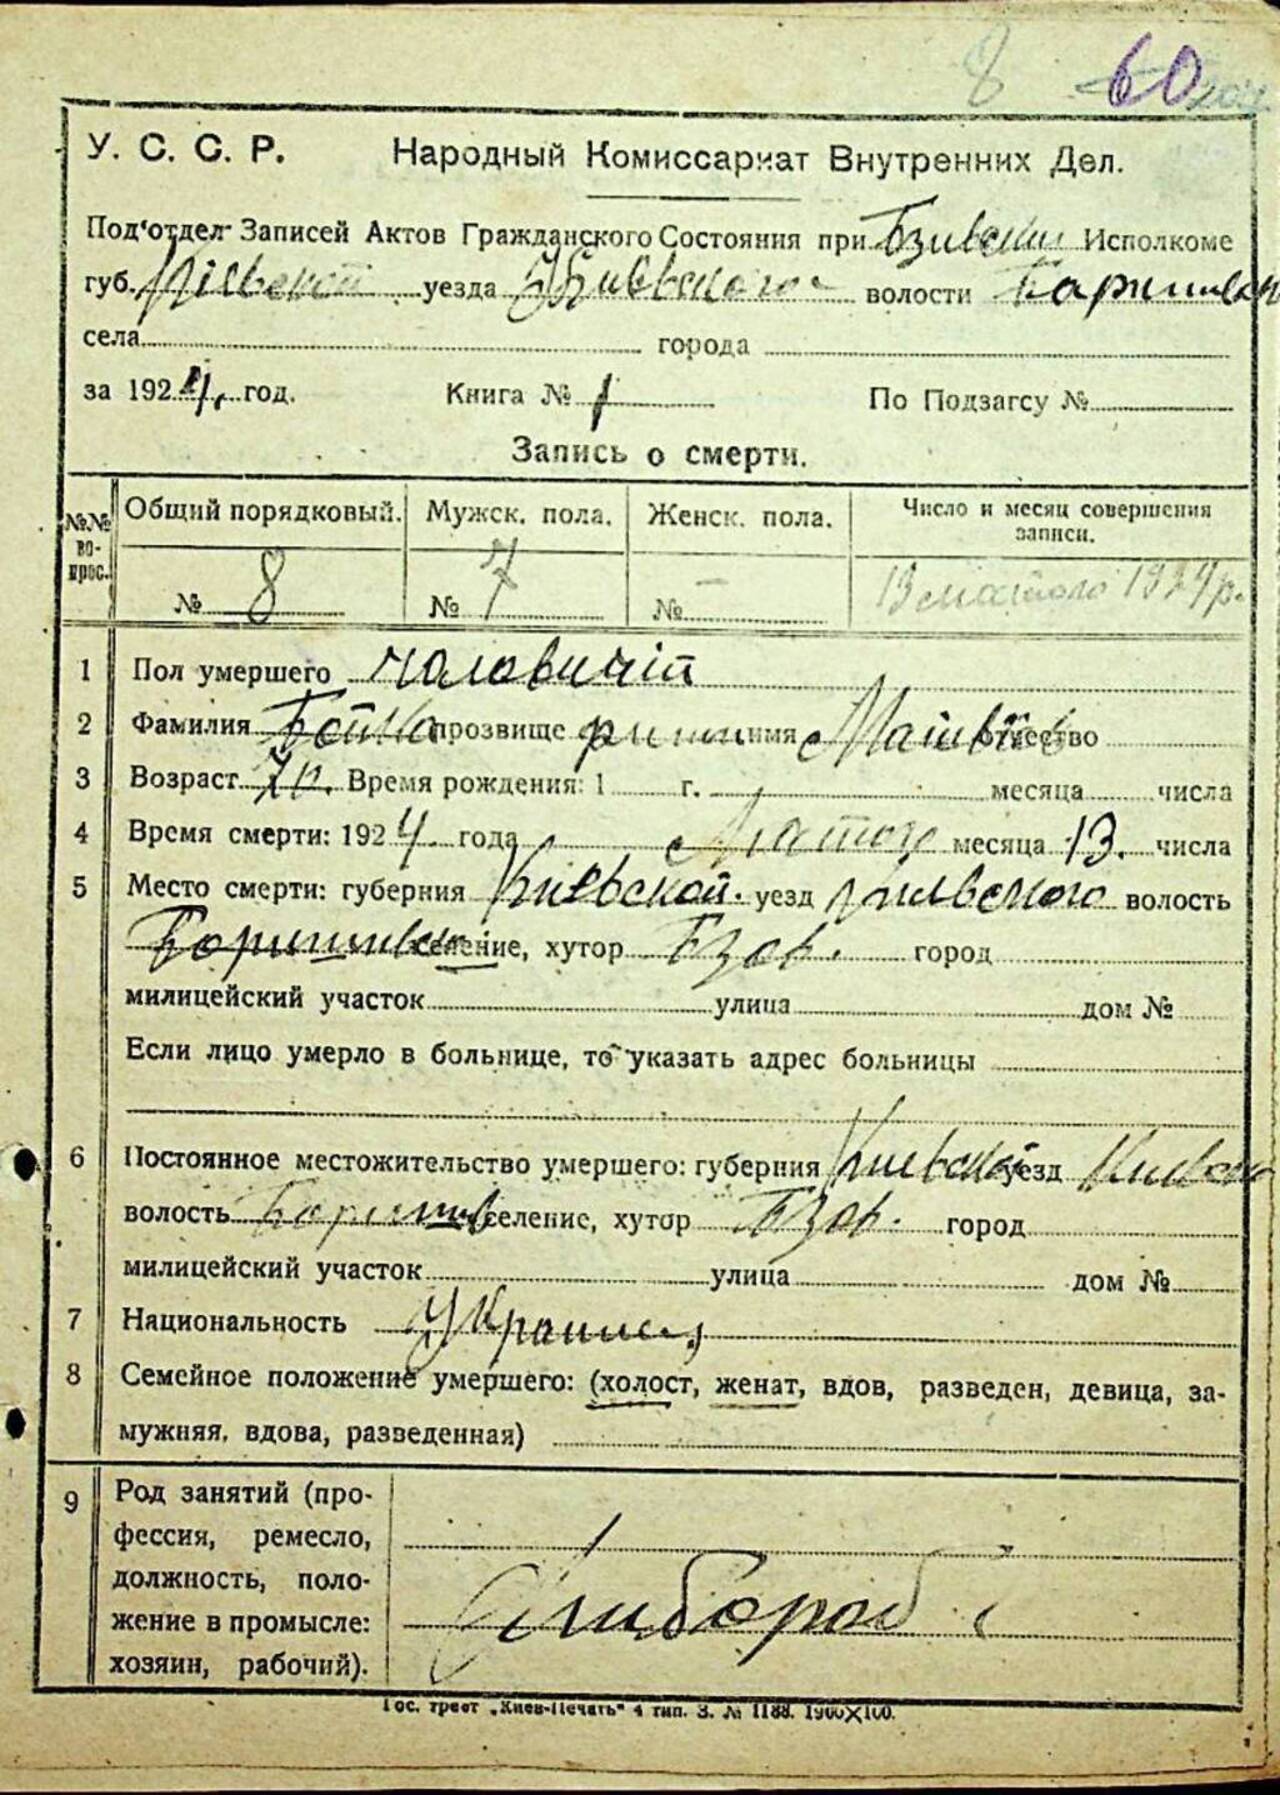 8 60
У. С. С. Р. Народный Комиссариат Внутренних Дел.
Под'отдел Записей Актов Гражданского Состояния при Бзивским Исполкоме
губ. Київской уезда Київського волости Баришевск
села города
за 1924, год. Книга № 1 По Подзагсу №
Запись о смерти.
№№ вопрос. Общий порядковый. Мужск. пола. Женск. пола. Число и месяц совершения записи.
№ 8 № 7 № — 13 лютого 1924 р.
1 Пол умершего чоловичій
2 Фамилия Бойко прозвище имя Матвій отчество
3 Возраст 7 р. Время рождения: 1 г. месяца числа
4 Время смерти: 1924. года Лютого месяца 13. числа
5 Место смерти: губерния Киевской. уезд Київского волость
Баришивск селение, хутор Бзов. город
милицейский участок улица дом №
Если лицо умерло в больнице, то указать адрес больницы
6 Постоянное местожительство умершего: губерния Киевской уезд Киевско
волость Баришив селение, хутор Бзов. город
милицейский участок улица дом №
7 Национальность Украинец
8 Семейное положение умершего: (холост, женат, вдов, разведен, девица, за-
мужняя, вдова, разведенная)
9 Род занятий (про-
фессия, ремесло,
должность, поло-
жение в промысле:
хозяин, рабочий).
Хлибороб
Гос. трест „Киев-Печать" 4 тип. З. № 1188. 1900×100.